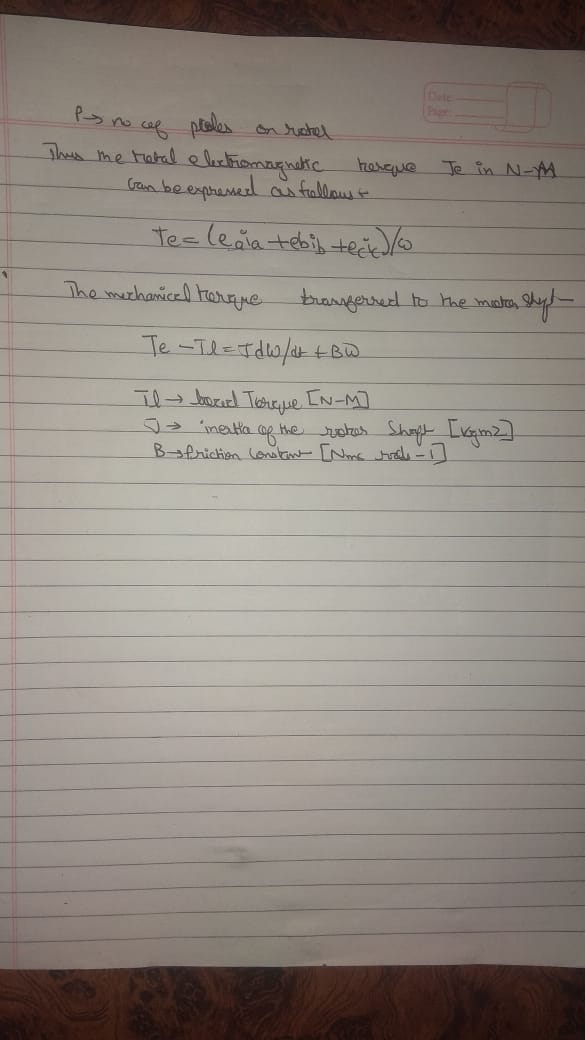 Date:
Page:
P→ no of poles on rotel
Thus the total electromagnetic torque Te in N-M
Can be expressed as follows
Te = (eaia + ebib + ecic)/ω
The mechanical torque transferred to the motor shyt
Te - Tl = Jdω/dt + Bω
Tl → load Torque [N-M]
J → inertia of the rotor Shaft [Kgm2]
B → friction Constant [Nms rads-1]